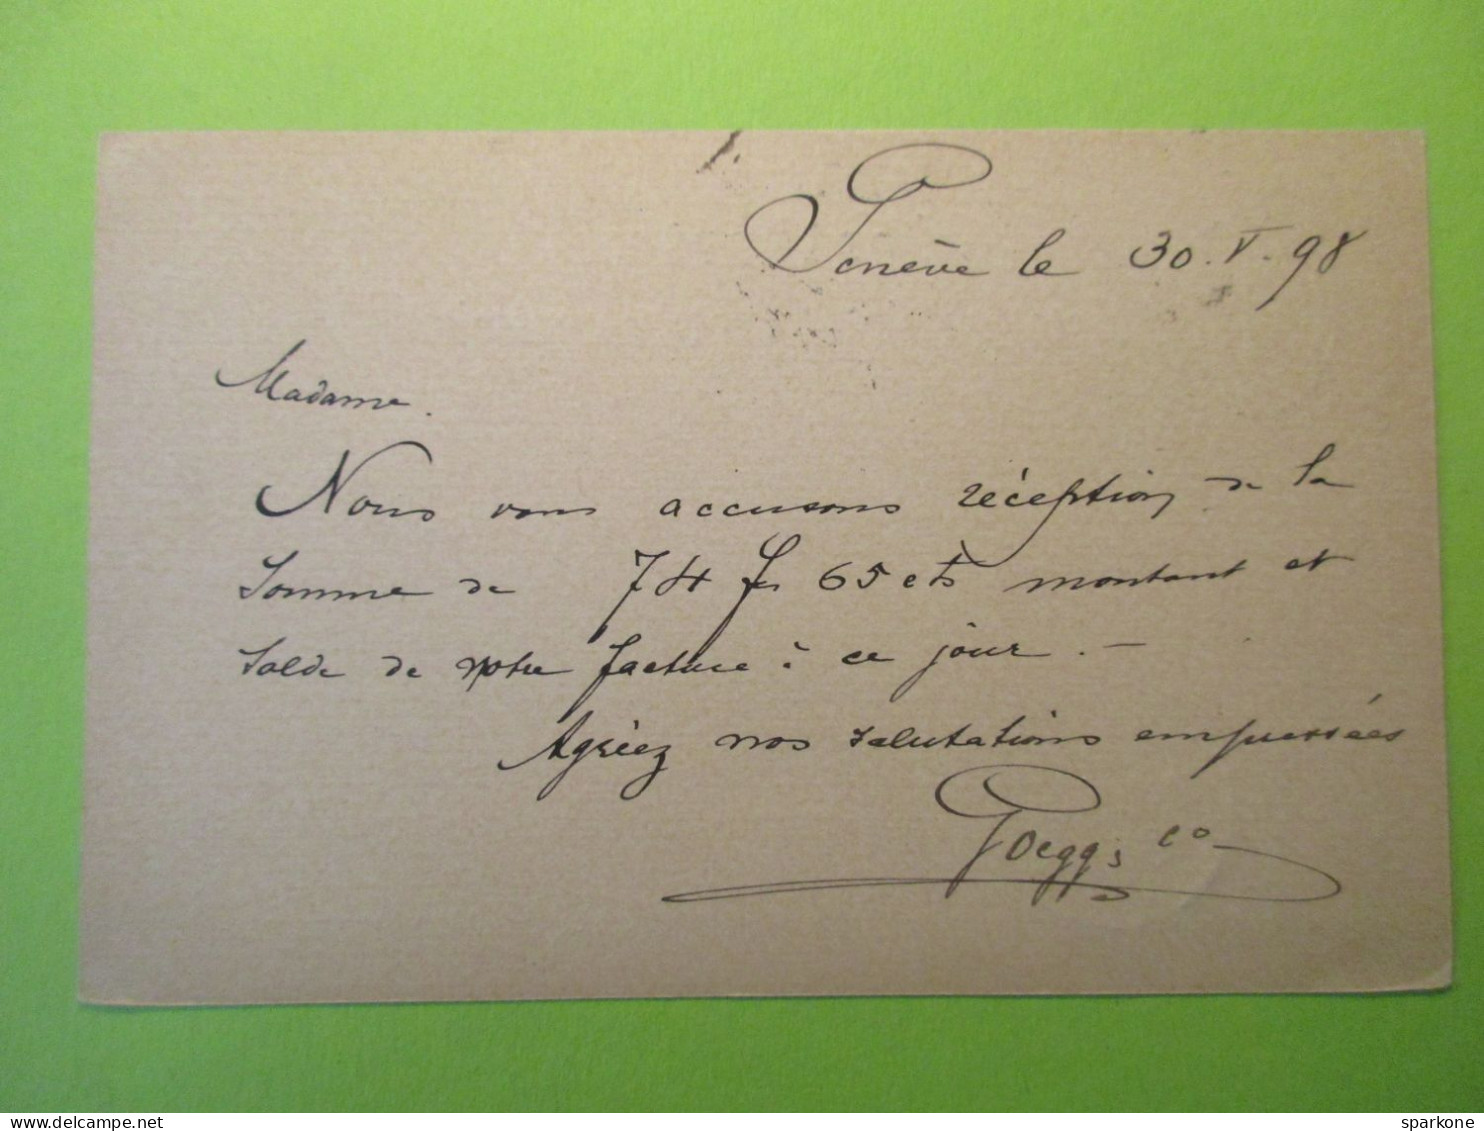 Genève le 30. V. 98
Madame.
Nous vous accusons réception de la
somme de 74 frs 65 cts montant et
solde de notre facture à ce jour. —
Agréez nos salutations empressées
Goegg & Co
sparkone